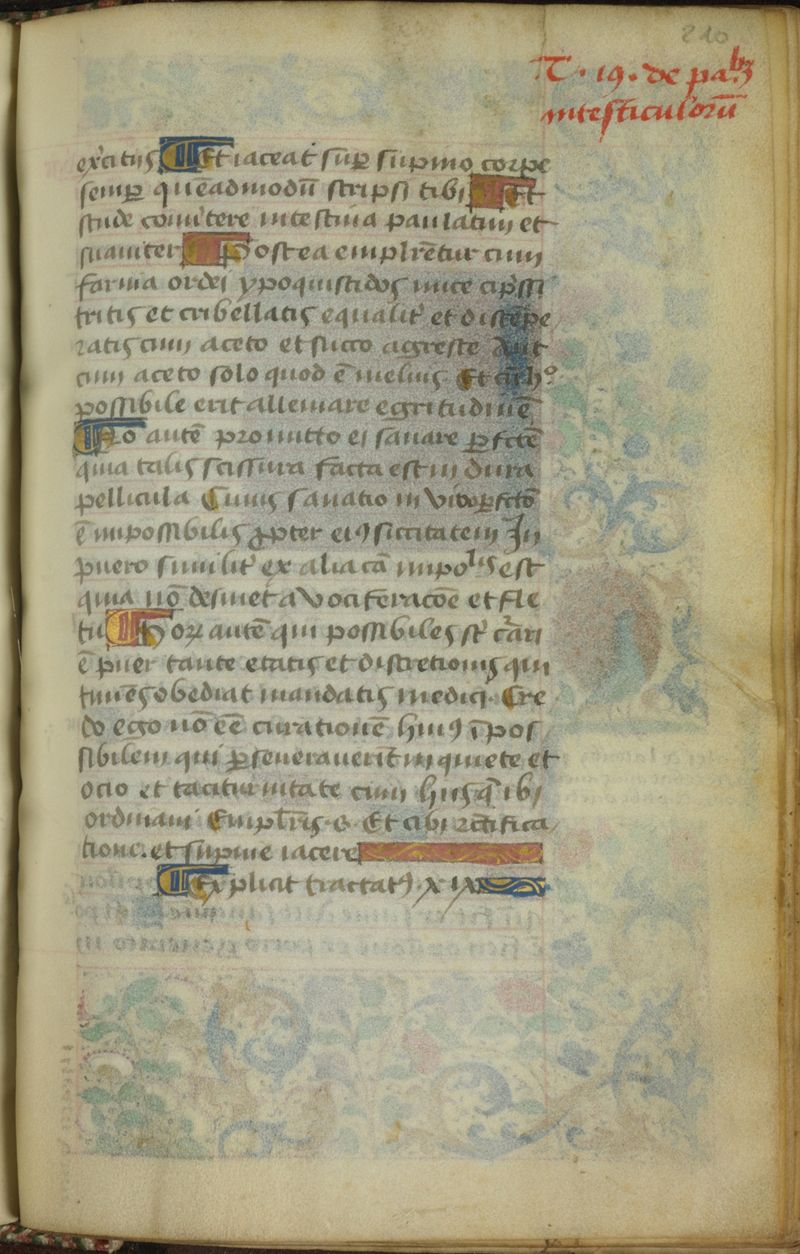 210
T. 19. de pabꝫ
intesticulorū
exercitus Et iaceat suꝑ supino corpe
semꝑ queadmodū scripsi tibi Et
stude convertere intestina paulatim et
suaviter Postea emplrētur cum
farina ordei ypoquistidos nuce cip̄ssi
tritis et cribellatis equalit᷑ et distēpe
ratis cum aceto et succo agreste Aut
cum aceto solo quod ē melius Et
possibile erit alleviare egritudinē
No autē promitto ei sanare ꝑfctē
quia talis scissura facta est in dura
pellicula Cuius sanatio in
ē impossibilis ꝓpter eiꝰ siccitatem In
puero similit᷑ ex alia cā impolis est
quia nō desinet a vociferacōe et fle
tu Hoꝝ autē qui possibiles st᷑
ē puer tante etatis et discretionis qui
timēs obediat mandatis medici Cre
do ego nō eē curationē huiꝰ īpos
sibilem qui ꝑseveraverit in quiete et
ocio et taciturnitate cum hiis q̄ ibi
ordinavi Emplr̄is. Et cibi rctifica
tione. et supine iacere
Explicit tractatꝰ xix